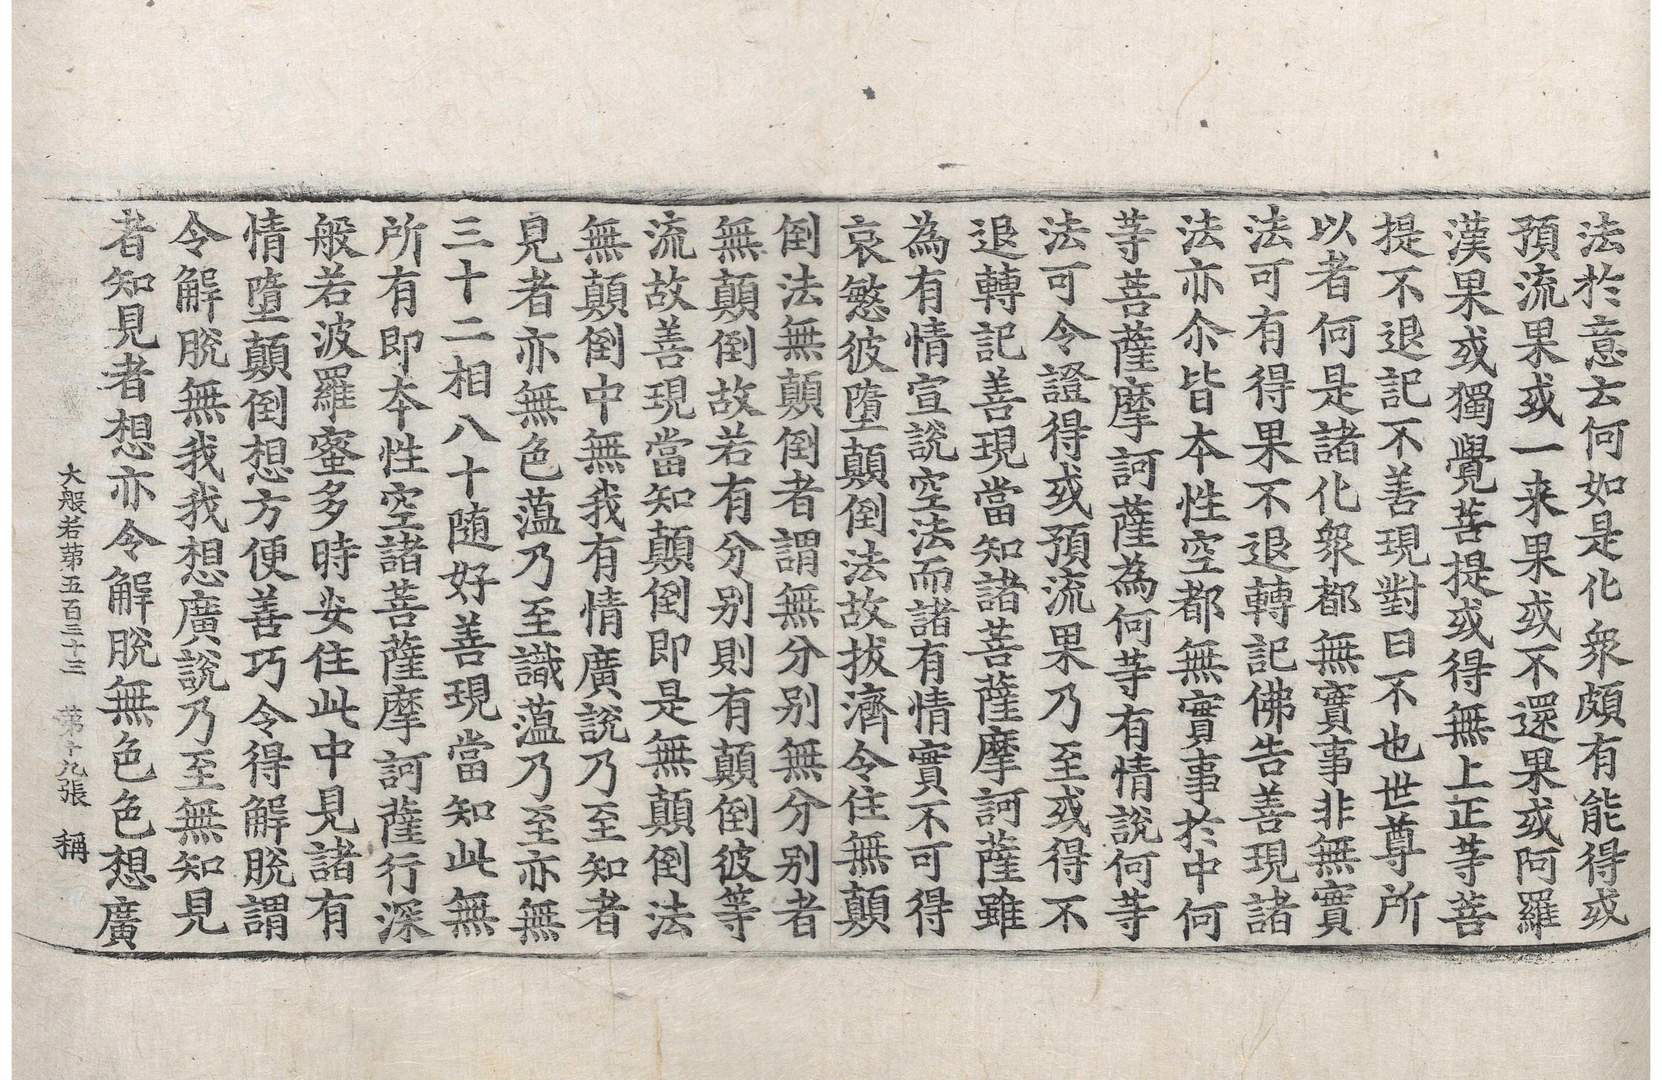 法於意云何如是化衆頗有能得或
預流果或一来果或不還果或阿羅
漢果或獨覺菩提或得無上正等菩
提不退記不善現對曰不也世尊所
以者何是諸化衆都無實事非無實
法可有得果不退轉記佛告善現諸
法亦尒皆本性空都無實事於中何
等菩薩摩訶薩為何等有情說何等
法可令證得或預流果乃至或得不
退轉記善現當知諸菩薩摩訶薩雖
為有情宣說空法而諸有情實不可得
哀愍彼墮顛倒法故拔濟令住無顛
倒法無顛倒者謂無分别無分别者
無顛倒故若有分别則有顛倒彼等
流故善現當知顛倒即是無顛倒法
無顛倒中無我有情廣說乃至知者
見者亦無色薀乃至識薀乃至亦無
三十二相八十随好善現當知此無
所有即本性空諸菩薩摩訶薩行深
般若波羅蜜多時安住此中見諸有
情墮顛倒想方便善巧令得解脫謂
令解脫無我我想廣說乃至無知見
者知見者想亦令解脫無色色想廣
大般若第五百三十三　第十九張　稱